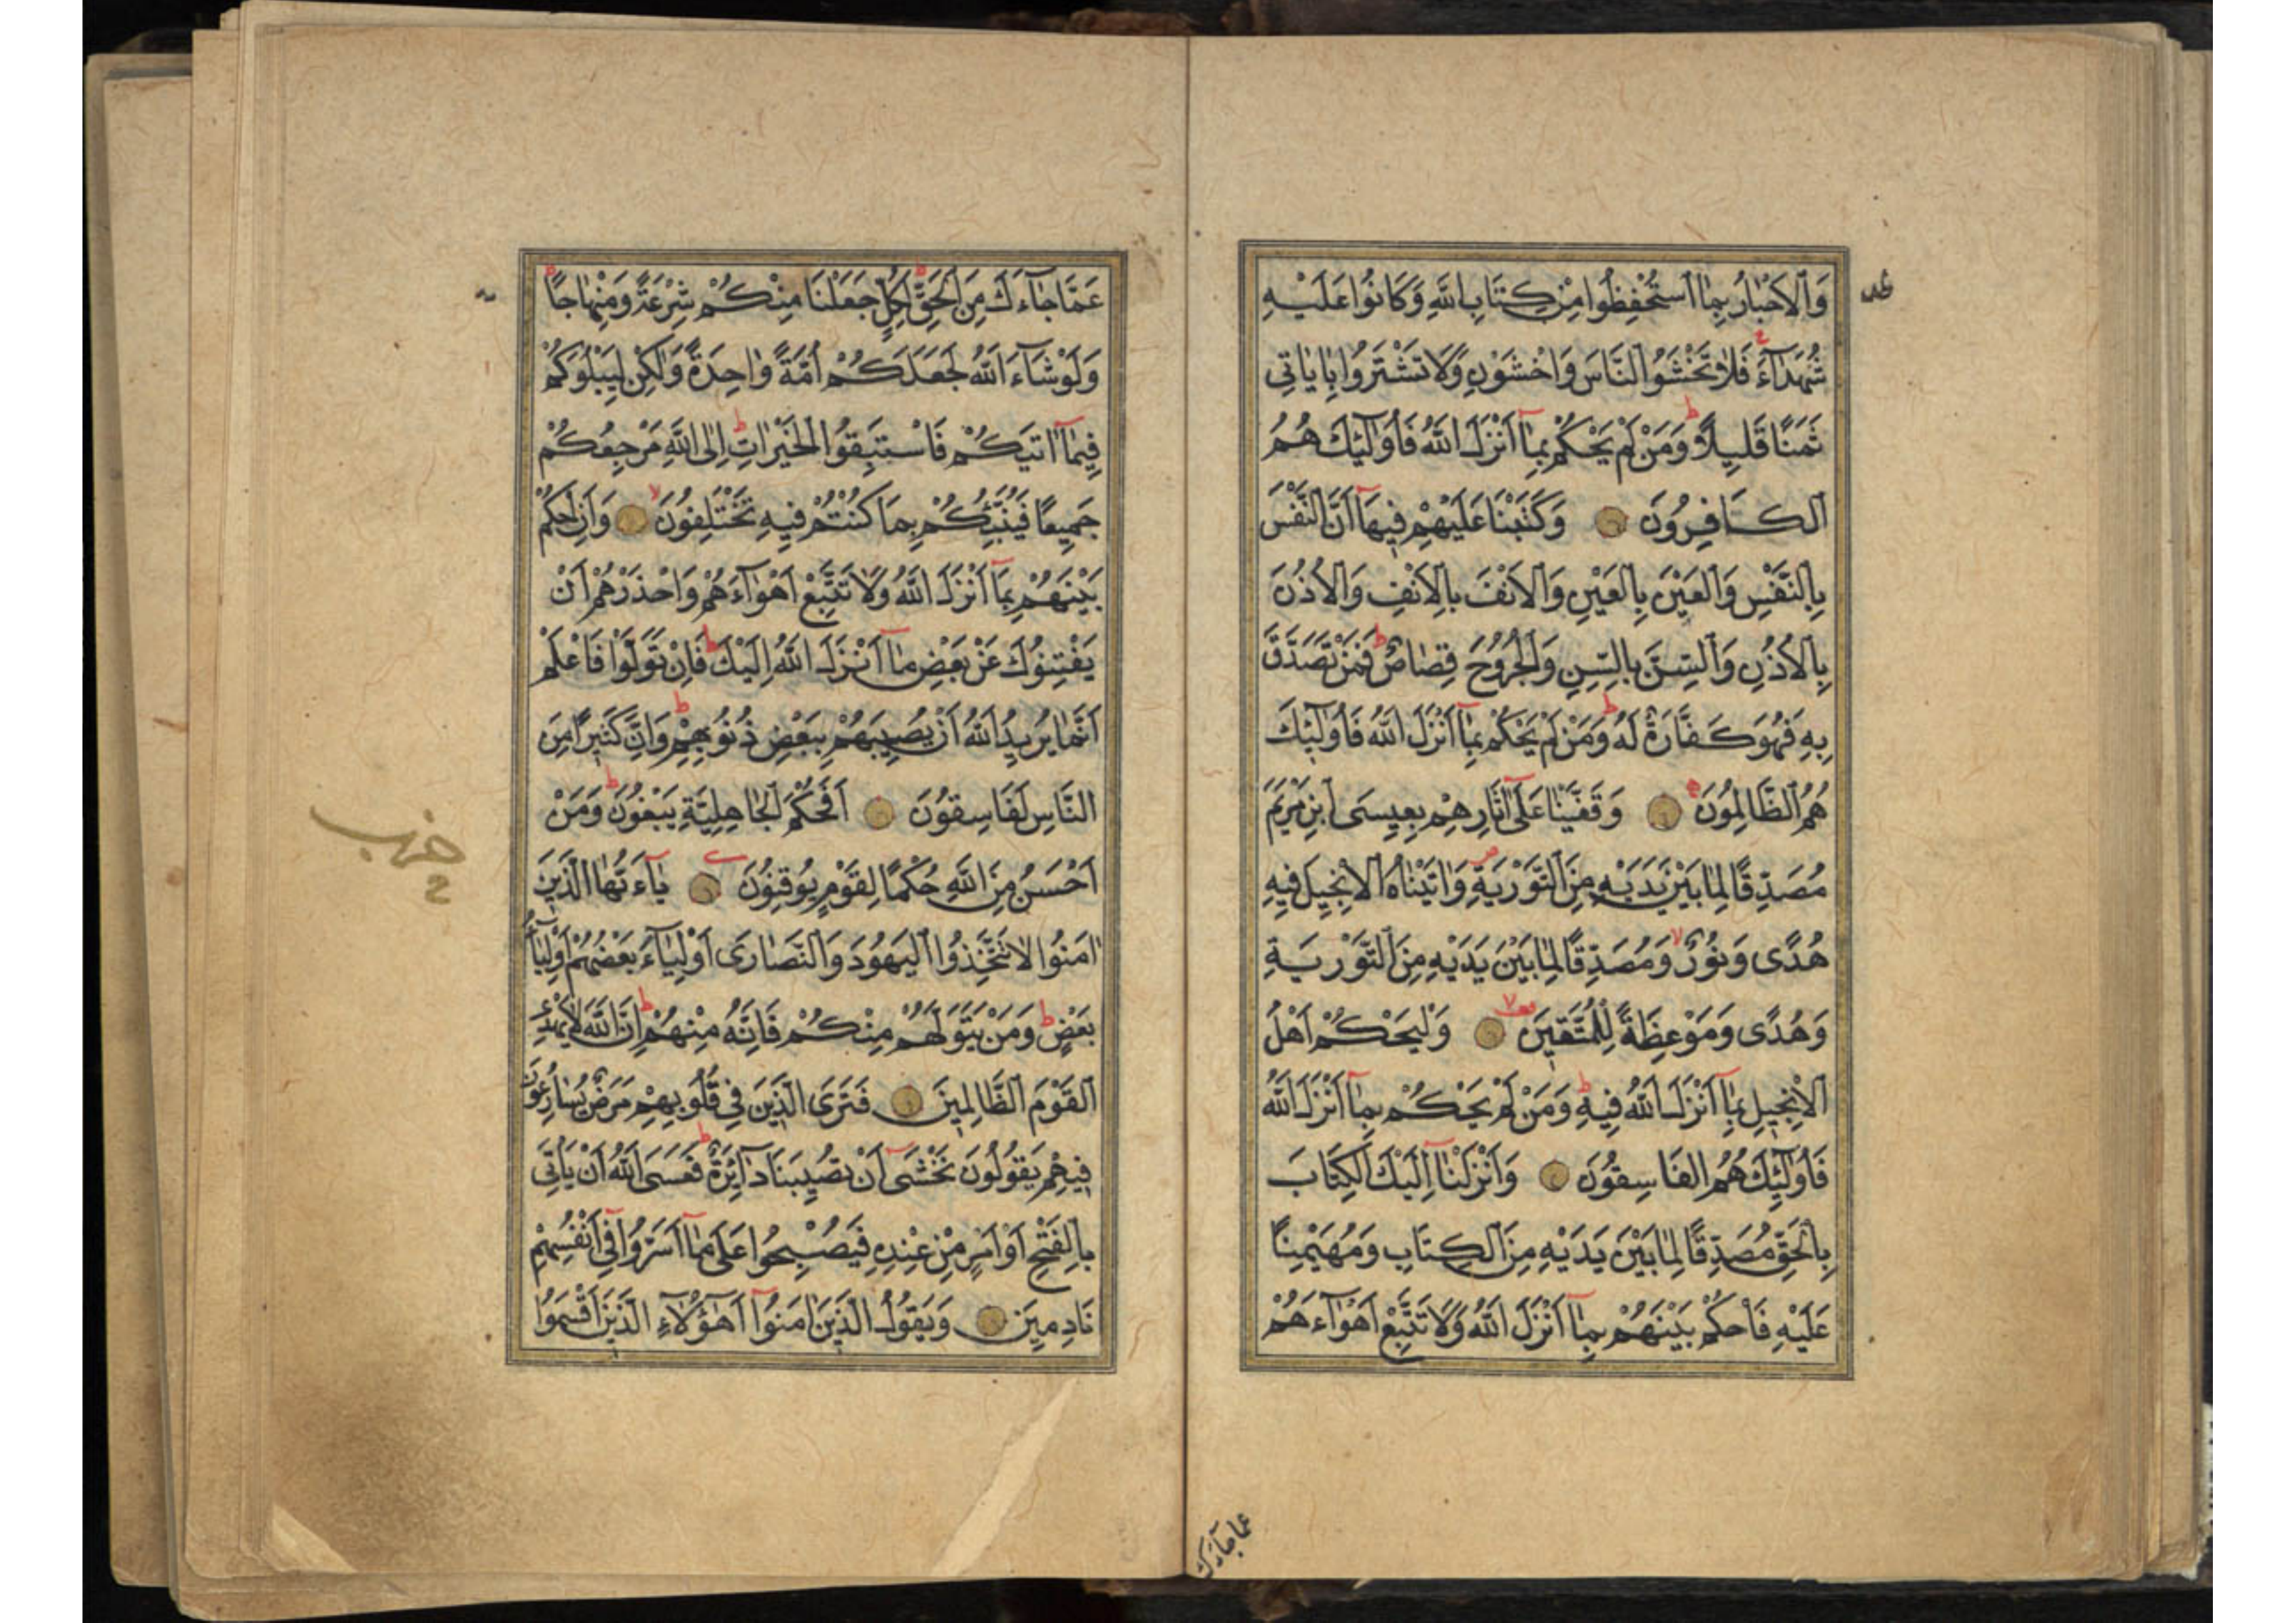 وَالْاَحْبَارُ بِمَا اسْتُحْفِظُوا مِنْ كِتَابِ اللّٰهِ وَكَانُوا عَلَيْهِ
شُهَدَآءَ فَلَا تَخْشَوُا النَّاسَ وَاخْشَوْنِ وَلَا تَشْتَرُوا بِاٰيَاتِى
ثَمَنًا قَلِيلًا وَمَنْ لَمْ يَحْكُمْ بِمَآ اَنْزَلَ اللّٰهُ فَاُولٰٓئِكَ هُمُ
الْكَافِرُونَ وَكَتَبْنَا عَلَيْهِمْ فِيهَآ اَنَّ النَّفْسَ
بِالنَّفْسِ وَالْعَيْنَ بِالْعَيْنِ وَالْاَنْفَ بِالْاَنْفِ وَالْاُذُنَ
بِالْاُذُنِ وَالسِّنَّ بِالسِّنِّ وَالْجُرُوحَ قِصَاصٌ فَمَنْ تَصَدَّقَ
بِهِ فَهُوَ كَفَّارَةٌ لَهُ وَمَنْ لَمْ يَحْكُمْ بِمَآ اَنْزَلَ اللّٰهُ فَاُولٰٓئِكَ
هُمُ الظَّالِمُونَ وَقَفَّيْنَا عَلٰٓى اٰثَارِهِمْ بِعِيسَى ابْنِ مَرْيَمَ
مُصَدِّقًا لِمَا بَيْنَ يَدَيْهِ مِنَ التَّوْرٰيةِ وَاٰتَيْنَاهُ الْاِنْجِيلَ فِيهِ
هُدًى وَنُورٌ وَمُصَدِّقًا لِمَا بَيْنَ يَدَيْهِ مِنَ التَّوْرٰيةِ
وَهُدًى وَمَوْعِظَةً لِلْمُتَّقِينَ وَلْيَحْكُمْ اَهْلُ
الْاِنْجِيلِ بِمَآ اَنْزَلَ اللّٰهُ فِيهِ وَمَنْ لَمْ يَحْكُمْ بِمَآ اَنْزَلَ اللّٰهُ
فَاُولٰٓئِكَ هُمُ الْفَاسِقُونَ وَاَنْزَلْنَآ اِلَيْكَ الْكِتَابَ
بِالْحَقِّ مُصَدِّقًا لِمَا بَيْنَ يَدَيْهِ مِنَ الْكِتَابِ وَمُهَيْمِنًا
عَلَيْهِ فَاحْكُمْ بَيْنَهُمْ بِمَآ اَنْزَلَ اللّٰهُ وَلَا تَتَّبِعْ اَهْوَآءَهُمْ
عما جآءك
عَمَّا جَآءَكَ مِنَ الْحَقِّ لِكُلٍّ جَعَلْنَا مِنْكُمْ شِرْعَةً وَمِنْهَاجًا
وَلَوْ شَآءَ اللّٰهُ لَجَعَلَكُمْ اُمَّةً وَاحِدَةً وَلٰكِنْ لِيَبْلُوَكُمْ
فِيمَآ اٰتٰيكُمْ فَاسْتَبِقُوا الْخَيْرَاتِ اِلَى اللّٰهِ مَرْجِعُكُمْ
جَمِيعًا فَيُنَبِّئُكُمْ بِمَا كُنْتُمْ فِيهِ تَخْتَلِفُونَ وَاَنِ احْكُمْ
بَيْنَهُمْ بِمَآ اَنْزَلَ اللّٰهُ وَلَا تَتَّبِعْ اَهْوَآءَهُمْ وَاحْذَرْهُمْ اَنْ
يَفْتِنُوكَ عَنْ بَعْضِ مَآ اَنْزَلَ اللّٰهُ اِلَيْكَ فَاِنْ تَوَلَّوْا فَاعْلَمْ
اَنَّمَا يُرِيدُ اللّٰهُ اَنْ يُصِيبَهُمْ بِبَعْضِ ذُنُوبِهِمْ وَاِنَّ كَثِيرًا مِنَ
النَّاسِ لَفَاسِقُونَ اَفَحُكْمَ الْجَاهِلِيَّةِ يَبْغُونَ وَمَنْ
اَحْسَنُ مِنَ اللّٰهِ حُكْمًا لِقَوْمٍ يُوقِنُونَ يَآءَيُّهَا الَّذِينَ
اٰمَنُوا لَا تَتَّخِذُوا الْيَهُودَ وَالنَّصَارٰى اَوْلِيَآءَ بَعْضُهُمْ اَوْلِيَآءُ
بَعْضٍ وَمَنْ يَتَوَلَّهُمْ مِنْكُمْ فَاِنَّهُ مِنْهُمْ اِنَّ اللّٰهَ لَا يَهْدِى
الْقَوْمَ الظَّالِمِينَ فَتَرَى الَّذِينَ فِى قُلُوبِهِمْ مَرَضٌ يُسَارِعُونَ
فِيهِمْ يَقُولُونَ نَخْشٰٓى اَنْ تُصِيبَنَا دَآئِرَةٌ فَعَسَى اللّٰهُ اَنْ يَاْتِىَ
بِالْفَتْحِ اَوْ اَمْرٍ مِنْ عِنْدِهِ فَيُصْبِحُوا عَلٰى مَآ اَسَرُّوا فِٓى اَنْفُسِهِمْ
نَادِمِينَ وَيَقُولُ الَّذِينَ اٰمَنُوٓا اَهٰٓؤُلَآءِ الَّذِينَ اَقْسَمُوا
حزب